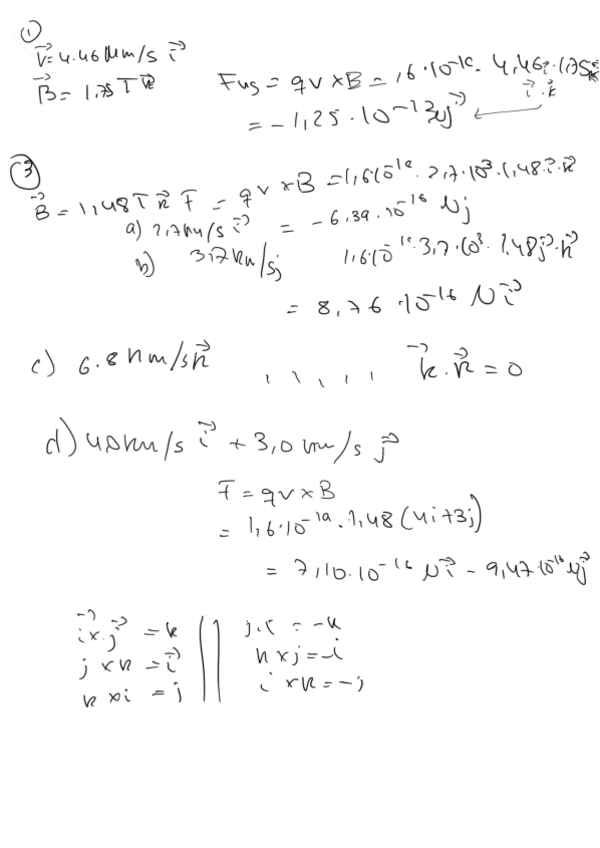 ①
v⃗ = 4.46 Mm/s i⃗
B⃗ = 1,75 T k⃗
F = qv×B = 1,6·10⁻¹⁹· 4,46 · 1,75
i⃗·k⃗
= -1,25·10⁻¹² N j⃗
③
B⃗ = 1,48 T k⃗ F = qv×B = 1,6·10⁻¹⁹· 2,7·10³·1,48 i⃗·k⃗
a) 2,7 km/s i⃗ = -6,39·10⁻¹⁶ N j
b) 3,7 km/s j 1,6·10⁻¹⁹·3,7·10³·1,48 j⃗·k⃗
= 8,76·10⁻¹⁶ N i⃗
c) 6.8 km/s k⃗ k⃗·k⃗ = 0
d) 4,0 km/s i⃗ + 3,0 km/s j⃗
F = qv×B
= 1,6·10⁻¹⁹·1,48 (4i+3j)
= 7,10·10⁻¹⁶ N i⃗ - 9,47·10⁻¹⁶ N j⃗
i⃗×j⃗ = k || j·i = -k
j×k = i⃗ || k×j = -i
k×i = j || i×k = -j